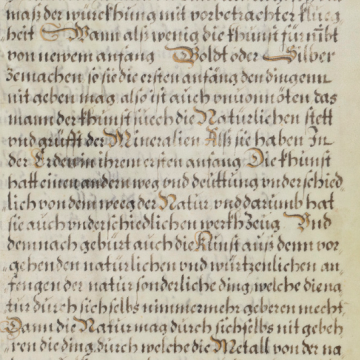 maß der würckhung mit vorbetrachter klueg
heit Wann alß wenig die khunst für übt
von newem anfang Goldt oder Silber
Zemachen so sie die ersten anfäng den dingenn
nit geben mag also ist auch vnuonnöten das
mann der khunst suech die Natürlichen stett
vnd grüfft der Mineralien Alß sie haben In
der Erden in ihrem ersten anfang Die khunst
hatt einen andern weg vnd deuttung vnderschied
lich von dem weeg der Natur vnd darumb hat
sie auch vnderschiedlichen werkhZeug Vnd
demnach geburt auch die Kunst auß denn vor
gehenden natürlichen vnd würtzenlichen an
fengen der natur sonderliche ding welche die na
tur durch sich selbs nimmermehr geberen mecht
Dann die Natur mag durch sich selbs nit gebeh
ren die ding durch welche die Metall von der na